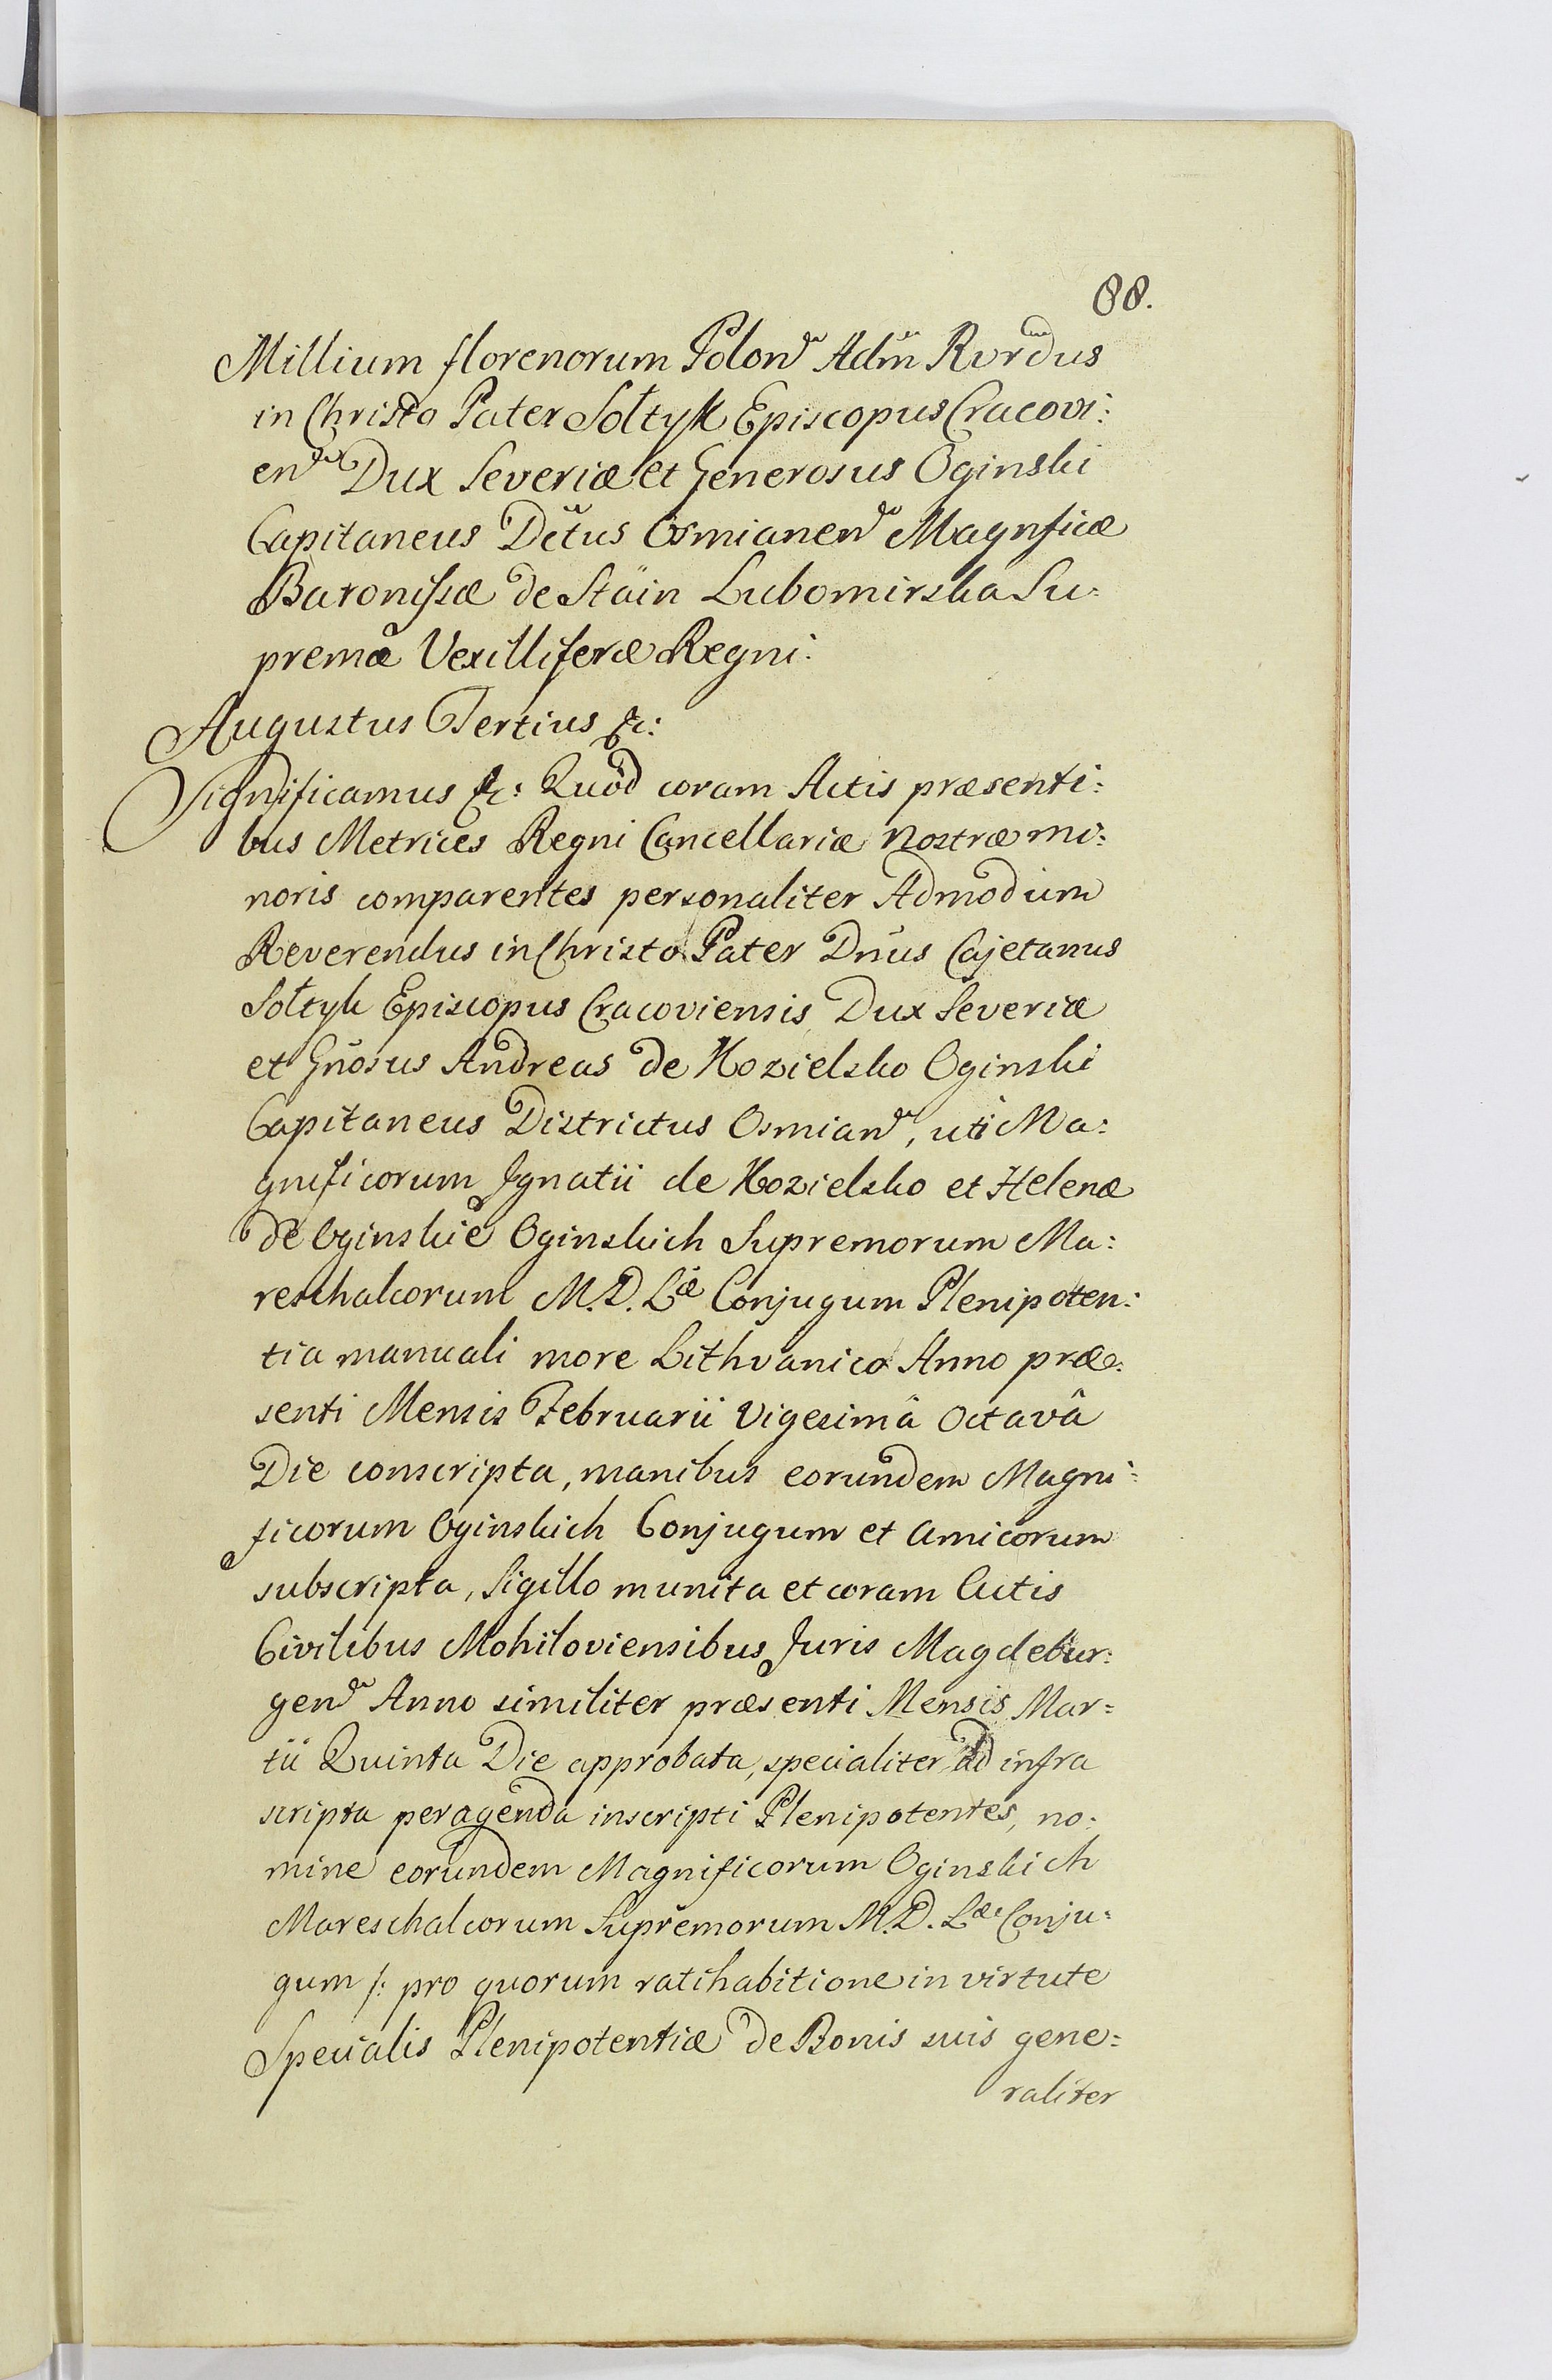 88.
Millium florenorum Polon Adm̃ Rvrd̃us
in Christo Pater Sołtyk Episcopus Cracovi:
en Dux Severiæ et Generosus Oginski
Capitaneus Dčtus Osmianen Magnficæ
Baronissæ de Stäin Lubomirska Su:
premæ Vexilliferæ Regni:
Augustus Tertius &c:
Significamus &c: Quod coram Actis præsenti:
bus Metrices Regni Cancellariæ nostræ mi:
noris comparentes personaliter Admodum
Reverendus in Christo Pater Dn̄us Cajetanus
Sołtyk Episcopus Cracoviensis Dux Severiæ
et Gn̄osus Andreas de Kozielsko Oginski
Capitaneus Districtus Osmian, uti Ma:
gnificorum Ignatii de Kozielsko et Helenæ
de Oginskie Oginskich Supremorum Ma:
reschalcorum M.D.Læ Conjugum Plenipoten:
tia manuali more Lithvanico Anno præ:
senti Mensis Februarii Vigesimâ Octavâ
Die conscripta, manibus eorundem Magni:
ficorum Oginskich Conjugum et Amicorum
subscripta, Sigillo munita et coram Actis
Civilibus Mohiloviensibus Juris Magdebur:
gen Anno similiter præsenti Mensis Mar=
tii Quinta Die approbata, specialiter ad infra
scripta peragenda inscripti Plenipotentes, no:
mine eorundem Magnificorum Oginskich
Mareschalcorum Supremorum M.D.Læ Conju:
gum /: pro quorum ratihabitione in virtute
Specialis Plenipotentiæ de Bonis suis gene:
raliter